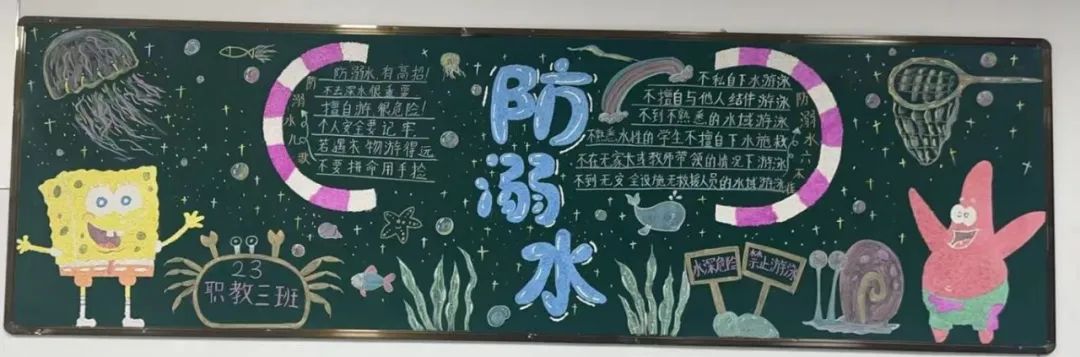 防溺水
防溺水儿歌
防溺水 有高招!
不去深水很重要
擅自游 很危险!
个人安全要记牢
若遇失物游得远
不要拼命用手捡
防溺水六不准
不私自下水游泳
不擅自与他人结伴游泳
不到不熟悉的水域游泳
不熟悉水性的学生不擅自下水施救
不在无家长或教师带领的情况下游泳
不到无安全设施无救援人员的水域游泳
23
职教三班
水深危险
禁止游泳